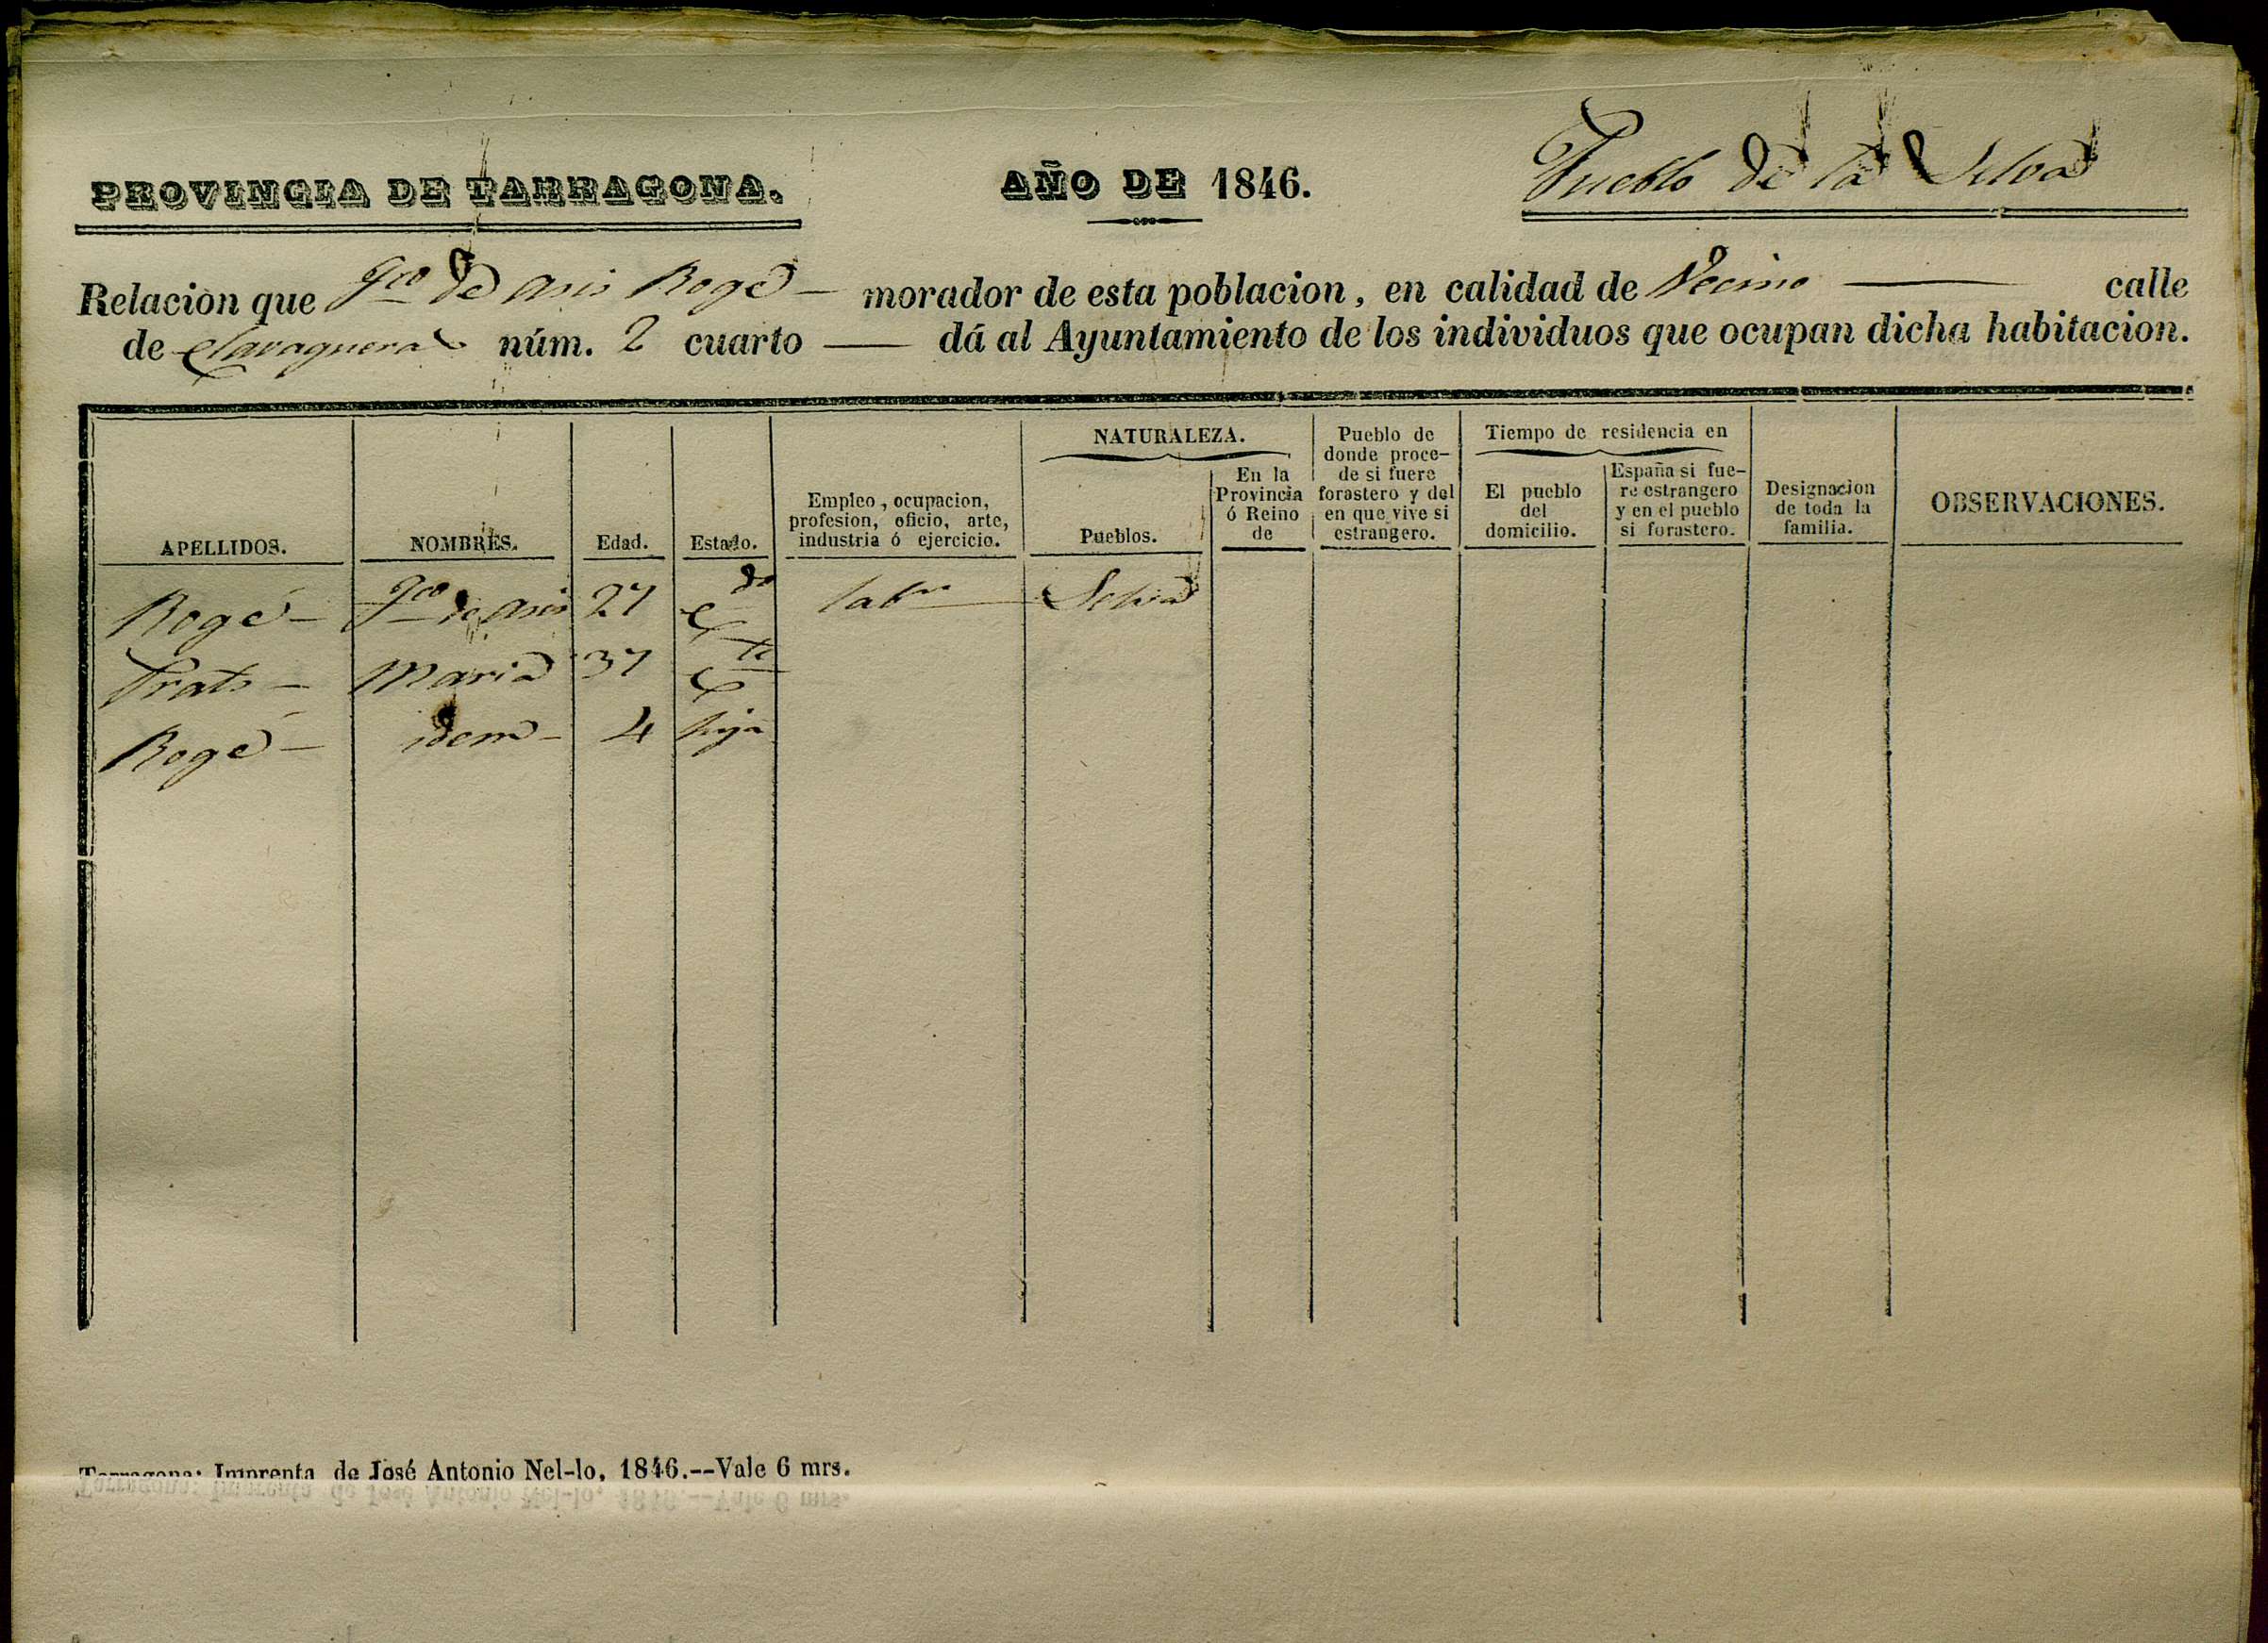 PROVINCIA DE TARRAGONA.
AÑO DE 1846.
Pueblo de la Selva
Relacion que Fco de Asis Rogé — morador de esta poblacion, en calidad de Vecino — calle
de Claraguera núm. 2 cuarto — dá al Ayuntamiento de los individuos que ocupan dicha habitacion.
APELLIDOS.
NOMBRES.
Edad.
Estado.
Empleo, ocupacion,
profesion, oficio, arte,
industria ó ejercicio.
NATURALEZA.
Pueblos.
En la
Provincia
ó Reino
de
Pueblo de
donde proce-
de si fuere
forastero y del
en que vive si
estrangero.
Tiempo de residencia en
El pueblo
del
domicilio.
España si fue-
re estrangero
y en el pueblo
si forastero.
Designacion
de toda la
familia.
OBSERVACIONES.
Rogé — Fco de Asis 27 Cdo labr — Selva
Prats — Maria 37 Cta
Rogé — idem — 4 hija
Tarragona: Imprenta de José Antonio Nel-lo, 1846.--Vale 6 mrs.